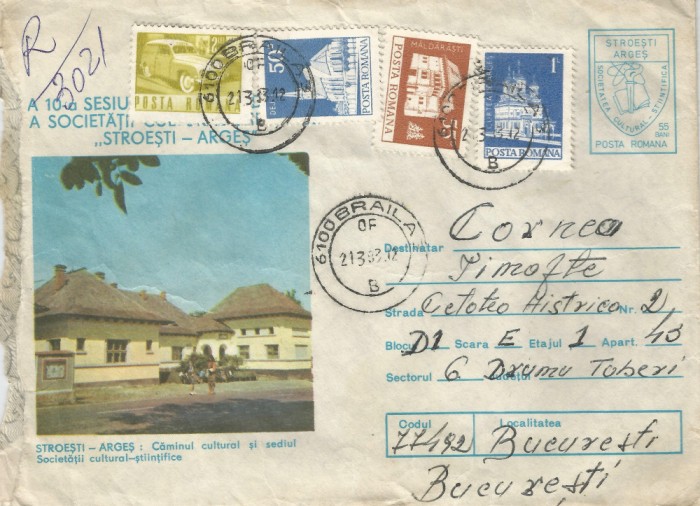 R
3021
A 10-a SESIU
A SOCIETĂȚII CUL
„STROEȘTI – ARGEȘ
POSTA RO
50
POSTA ROMANA
MĂLDĂRĂȘTI
POSTA ROMANA
1
POSTA ROMANA
6100 BRAILA
OF
213.83.12
B
STROEȘTI
ARGEȘ
SOCIETATEA CULTURAL-ȘTIINȚIFICĂ
55
BANI
POSTA ROMANA
6100 BRAILA
OF
213.83.12
B
Destinatar Cornea
Timofte
Strada Celotea Histrica Nr. 2
Blocu D1 Scara E Etajul 1 Apart. 43
Sectorul 6 Județul Drumu Taberi
Codul Localitatea
77492 București
București
STROEȘTI – ARGEȘ : Căminul cultural și sediul
Societății cultural-științifice